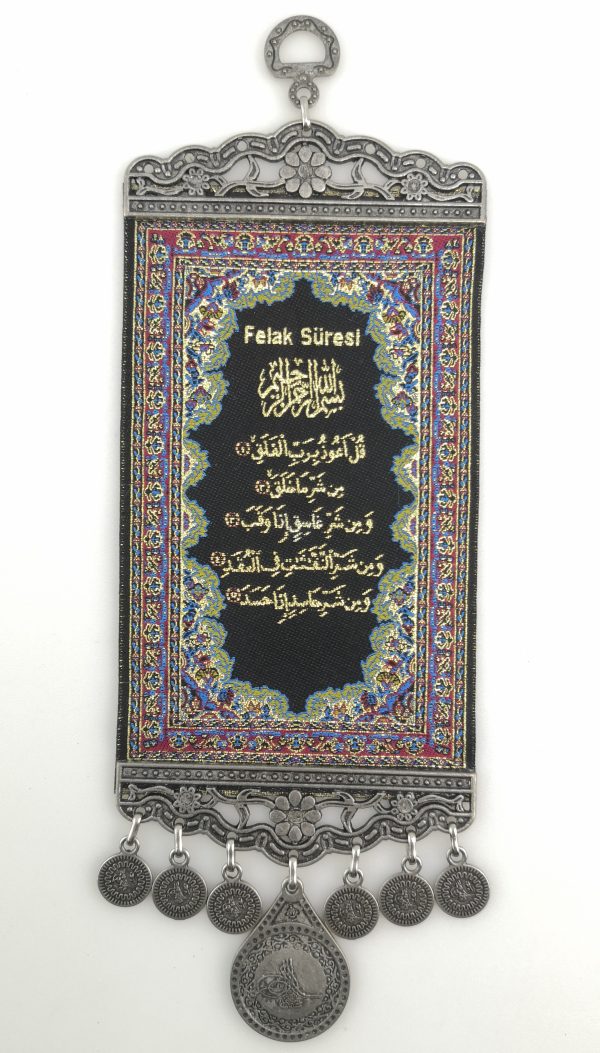 Felak Sûresi
بسم الله الرحمن الرحيم
قُلْ اَعُوذُ بِرَبِّ الْفَلَقِۙ ﴿١﴾
مِنْ شَرِّ مَا خَلَقَۙ ﴿٢﴾
وَ مِنْ شَرِّ غَاسِقٍ اِذَا وَقَبَۙ ﴿٣﴾
وَ مِنْ شَرِّ النَّفّٰثٰتِ فِي الْعُقَدِۙ ﴿٤﴾
وَ مِنْ شَرِّ حَاسِدٍ اِذَا حَسَدَ ﴿٥﴾